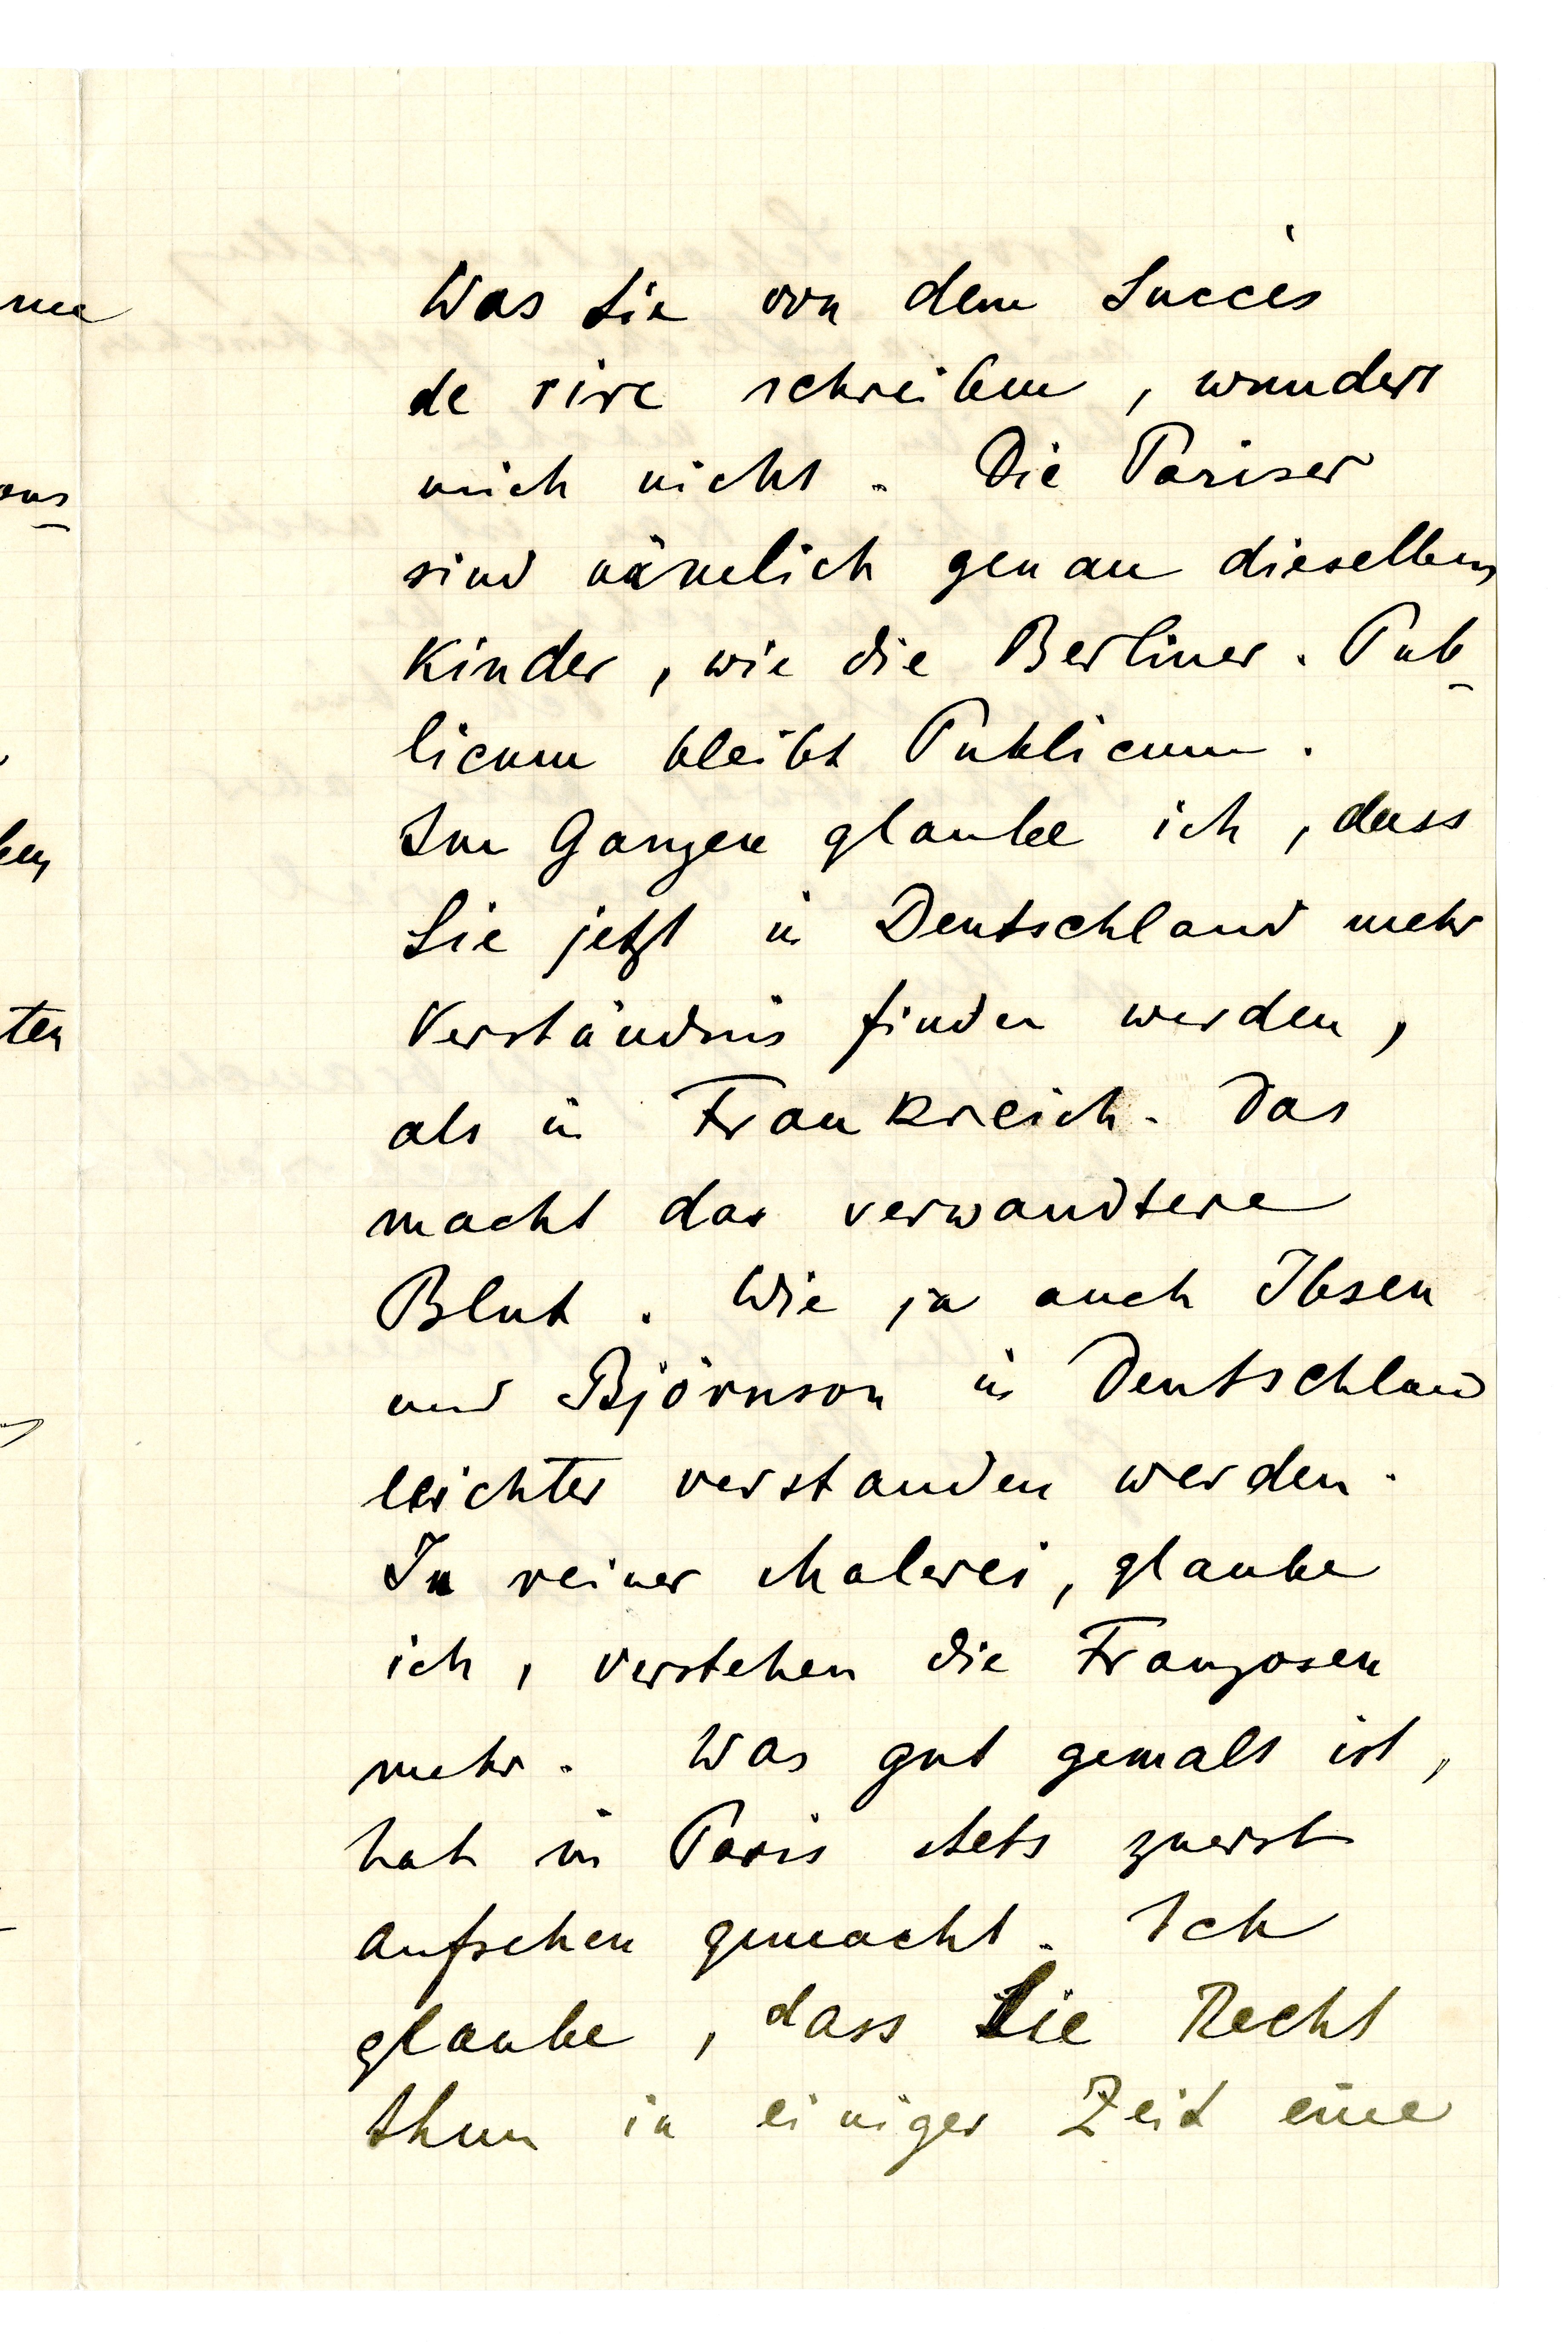 Was Sie von dem Succès
de rire schreiben, wundert
mich nicht. Die Pariser
sind nämlich genau dieselben
Kinder, wie die Berliner. Pub-
licum bleibt Publicum.
Im Ganzen glaube ich, dass
Sie jetzt in Deutschland mehr
Verständnis finden werden,
als in Frankreich. Das
macht das verwandtere
Blut. Wie ja auch Ibsen
und Björnson in Deutschland
leichter verstanden werden.
In reiner Malerei, glaube
ich, verstehen die Franzosen
mehr. Was gut gemalt ist,
hat in Paris stets zuerst
Aufsehen gemacht. Ich
glaube, dass Sie Recht
thun in einiger Zeit eine